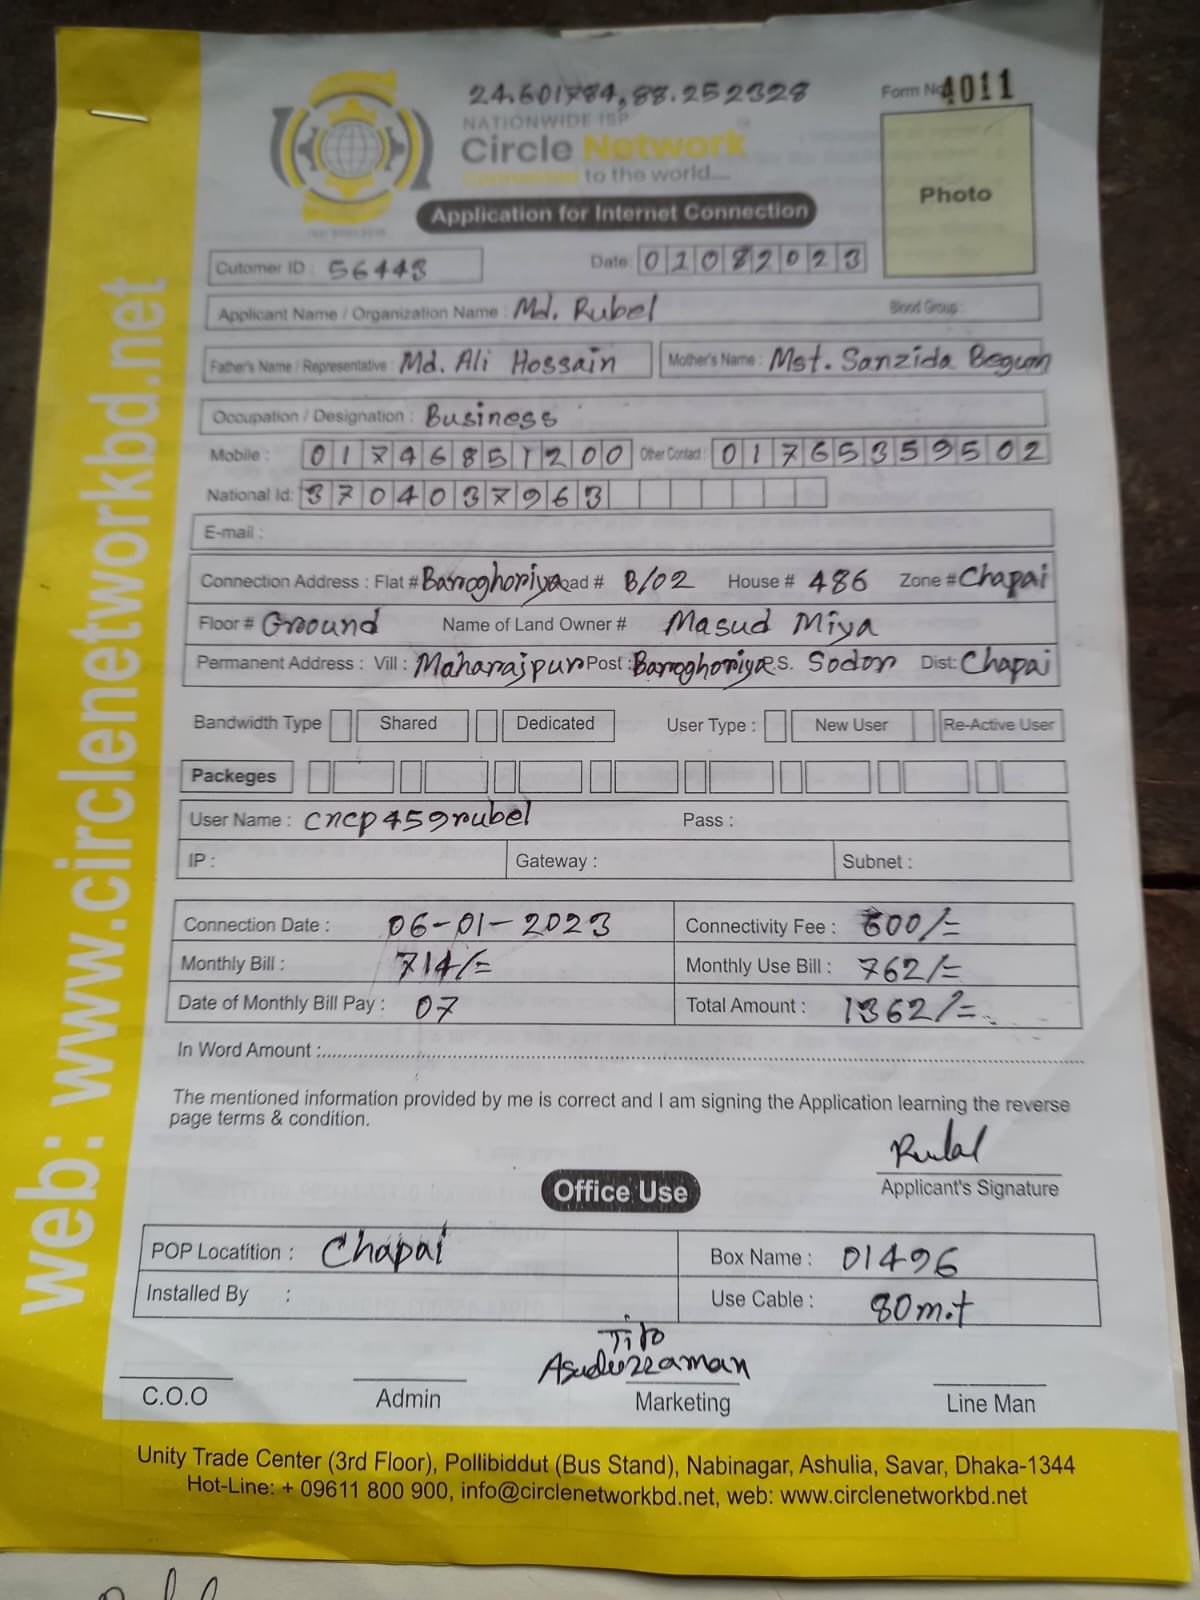 24.601784,88.252328
Form No 4011
NATIONWIDE ISP
Circle Network
Connected to the world....
Photo
Application for Internet Connection
Cutomer ID : 56443 Date: 01082023
Applicant Name / Organization Name : Md. Rubel Blood Group :
Father's Name / Representative : Md. Ali Hossain Mother's Name : Mst. Sanzida Begum
Occupation / Designation : Business
Mobile : 01746851200 Other Contact : 01765359502
National Id: 3704037963
E-mail :
Connection Address : Flat # Barroghoriya Road # B/02 House # 486 Zone # Chapai
Floor # Ground Name of Land Owner # Masud Miya
Permanent Address : Vill : Maharajpur Post : Barroghoriya P.S. Sodor Dist: Chapai
Bandwidth Type Shared Dedicated User Type : New User Re-Active User
Packeges
User Name : cncp459rubel Pass :
IP : Gateway : Subnet :
Connection Date : 06-01-2023 Connectivity Fee : 600/=
Monthly Bill : 714/= Monthly Use Bill : 762/=
Date of Monthly Bill Pay : 07 Total Amount : 1362/=
In Word Amount :
The mentioned information provided by me is correct and I am signing the Application learning the reverse
page terms & condition.
Rubel
Applicant's Signature
Office Use
POP Locatition : Chapai Box Name : 01496
Installed By : Use Cable : 80m.t
Tito
Asaduzzaman
C.O.O Admin Marketing Line Man
Unity Trade Center (3rd Floor), Pollibiddut (Bus Stand), Nabinagar, Ashulia, Savar, Dhaka-1344
Hot-Line: + 09611 800 900, info@circlenetworkbd.net, web: www.circlenetworkbd.net
web: www.circlenetworkbd.net